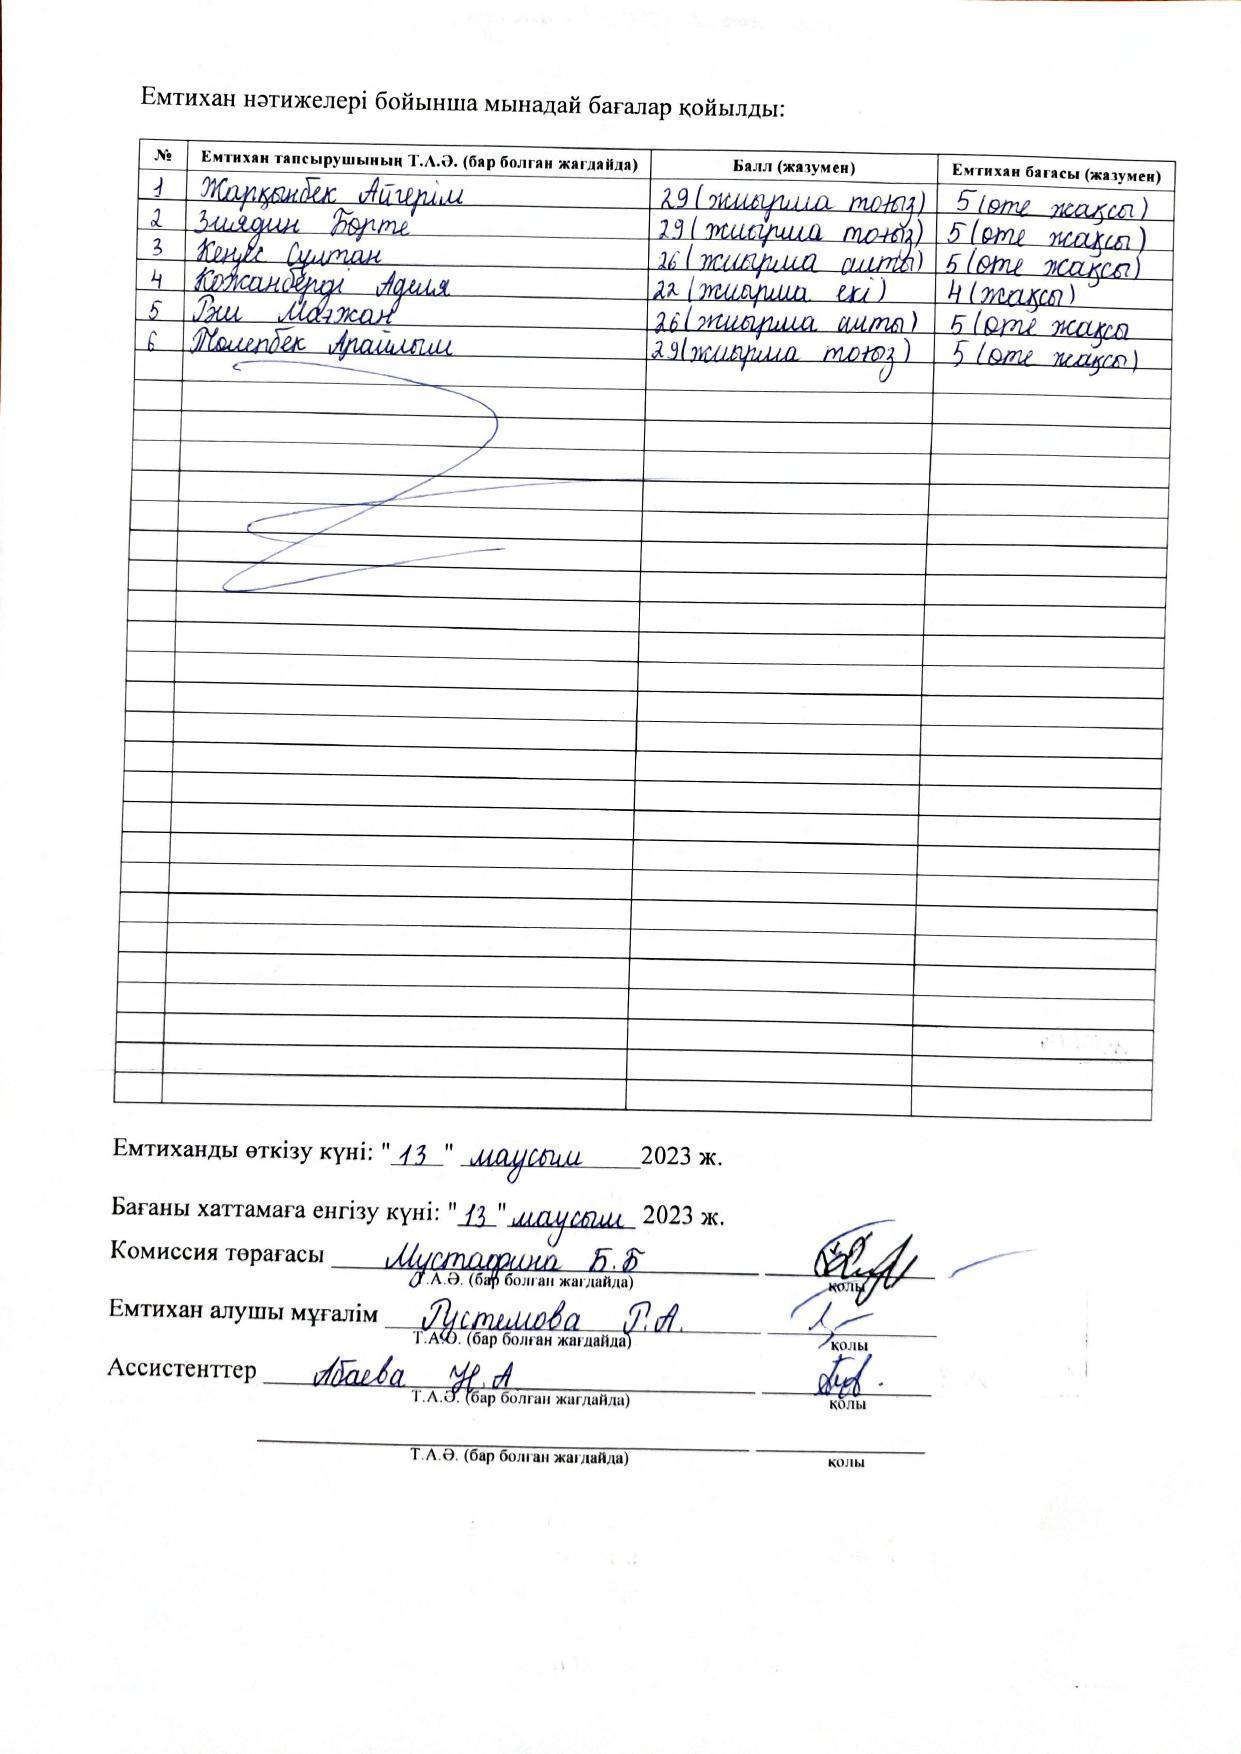 Емтихан нәтижелері бойынша мынадай бағалар қойылды:
№ Емтихан тапсырушының Т.А.Ә. (бар болған жағдайда) Балл (жазумен) Емтихан бағасы (жазумен)
1 Жарқынбек Айгерім 29 (жиырма тоғыз) 5 (өте жақсы)
2 Зиядин Бөрте 29 (жиырма тоғыз) 5 (өте жақсы)
3 Кеңес Сұлтан 26 (жиырма алты) 5 (өте жақсы)
4 Кожанберді Аделя 22 (жиырма екі) 4 (жақсы)
5 Мағжан 26 (жиырма алты) 5 (өте жақсы
6 Төлепбек Арайлым 29 (жиырма тоғыз) 5 (өте жақсы)
Емтиханды өткізу күні: "13" маусым 2023 ж.
Бағаны хаттамаға енгізу күні: "13" маусым 2023 ж.
Комиссия төрағасы Мустафина Б.Б
Т.А.Ә. (бар болған жағдайда) қолы
Емтихан алушы мұғалім Рустемова Г.А.
Т.А.Ә. (бар болған жағдайда) қолы
Ассистенттер Абаева Н.А
Т.А.Ә. (бар болған жағдайда) қолы
Т.А.Ә. (бар болған жағдайда) қолы